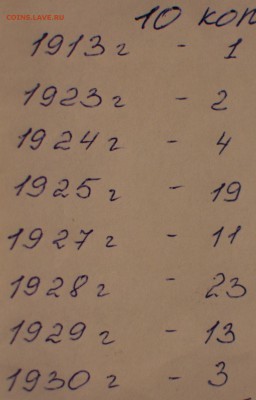 COINS.LAVE.RU
10 коп
1913 г - 1
1923 г - 2
1924 г - 4
1925 г - 19
1927 г - 11
1928 г - 23
1929 г - 13
1930 г - 3